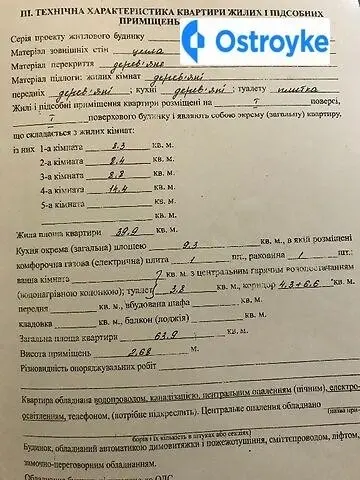 ІІІ. ТЕХНІЧНА ХАРАКТЕРИСТИКА КВАРТИРИ ЖИЛИХ І ПІДСОБНИХ
ПРИМІЩЕНЬ
Ostroyke
Серія проекту житлового будинку
Матеріал зовнішніх стін цегла
Матеріал перекриття дерев'яне
Матеріал підлоги: жилих кімнат дерев'яні
передніх дерев'яні ; кухні дерев'яні ; туалету плитка
Жилі і підсобні приміщення квартири розміщені на 1 поверсі,
1 поверхового будинку і являють собою окрему (загальну) квартиру,
що складається з жилих кімнат:
із них 1-а кімната 8.3 кв. м.
2-а кімната 8.4 кв. м.
3-а кімната 8.8 кв. м.
4-а кімната 14.4 кв. м.
5-а кімната кв. м.
кв. м.
Жила площа квартири 39,9 кв. м.
Кухня окрема (загальна) площею 9.3 кв. м., в якій розміщені
комфорочна газова (електрична) плита 1 шт., раковина 1 шт.:
ванна кімната кв. м. з центральним гарячим водопостачанням
(водонагрівною колонкою); туалет 3,8 кв. м., коридор 4.3+6.6 кв. м.
передня кв. м., вбудована шафа кв. м.
кладовка кв. м., балкон (лоджія) кв. м.
Загальна площа квартири 63.9 кв. м.
Висота приміщень 2.68 м.
Різновидність опоряджувальних робіт
Квартира обладнана водопроводом, каналізацією, центральним опаленням (пічним), електро-
освітленням, телефоном, (потрібне підкреслить). Центральне опалення обладнано
(назва при-
борів і їх кількість в штуках або секціях)
Будинок, обладнаний автоматикою димовитяжки і пожежотушіння, сміттєпроводом, ліфтом,
замочно-переговорним обладнанням.